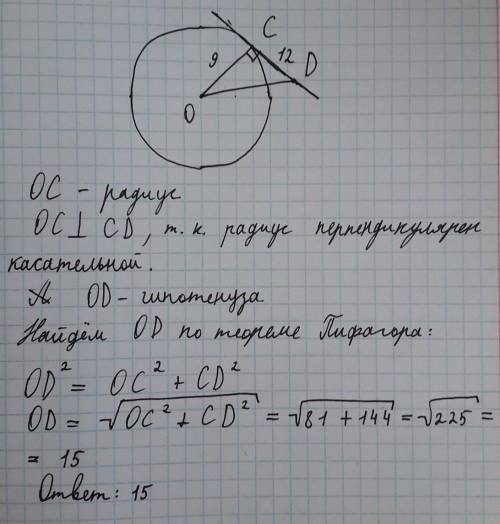 C
9
12
D
O
OC - радиус
OC ⊥ CD, т.к. радиус перпендикулярен
касательной.
OD - гипотенуза
Найдём OD по теореме Пифагора:
OD² = OC² + CD²
OD = √(OC² + CD²) = √(81 + 144) = √225 =
= 15
Ответ: 15